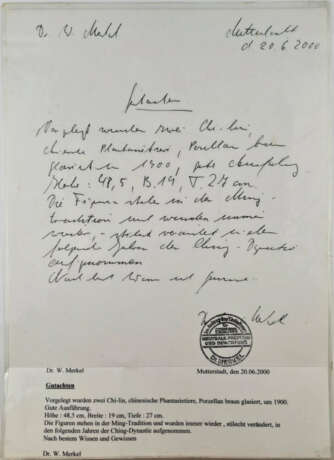 Dr. W. Merkel Mutterstadt
d 20.6.2000
Gutachten
Vorgelegt wurden zwei Chi-lin,
chines. Phantasietiere, Porzellan braun
glasiert um 1900, gute Ausführung
Höhe: 48,5, B. 19, T. 27 cm.
Die Figuren stehen in der Ming-
tradition und wurden immer
wieder, stilecht verändert in den
folgenden Jahren der Ching-Dynastie
aufgenommen
Nach best. Wissen und Gewissen
Dr. MERKEL
Dr. W. Merkel Mutterstadt, den 20.06.2000
Gutachten
Vorgelegt wurden zwei Chi-lin, chinesische Phantasietiere, Porzellan braun glasiert, um 1900.
Gute Ausführung.
Höhe : 48.5 cm, Breite : 19 cm, Tiefe : 27 cm.
Die Figuren stehen in der Ming-Tradition und wurden immer wieder , stilecht verändert, in
den folgenden Jahren der Ching-Dynastie aufgenommen.
Nach bestem Wissen und Gewissen
Dr. W. Merkel